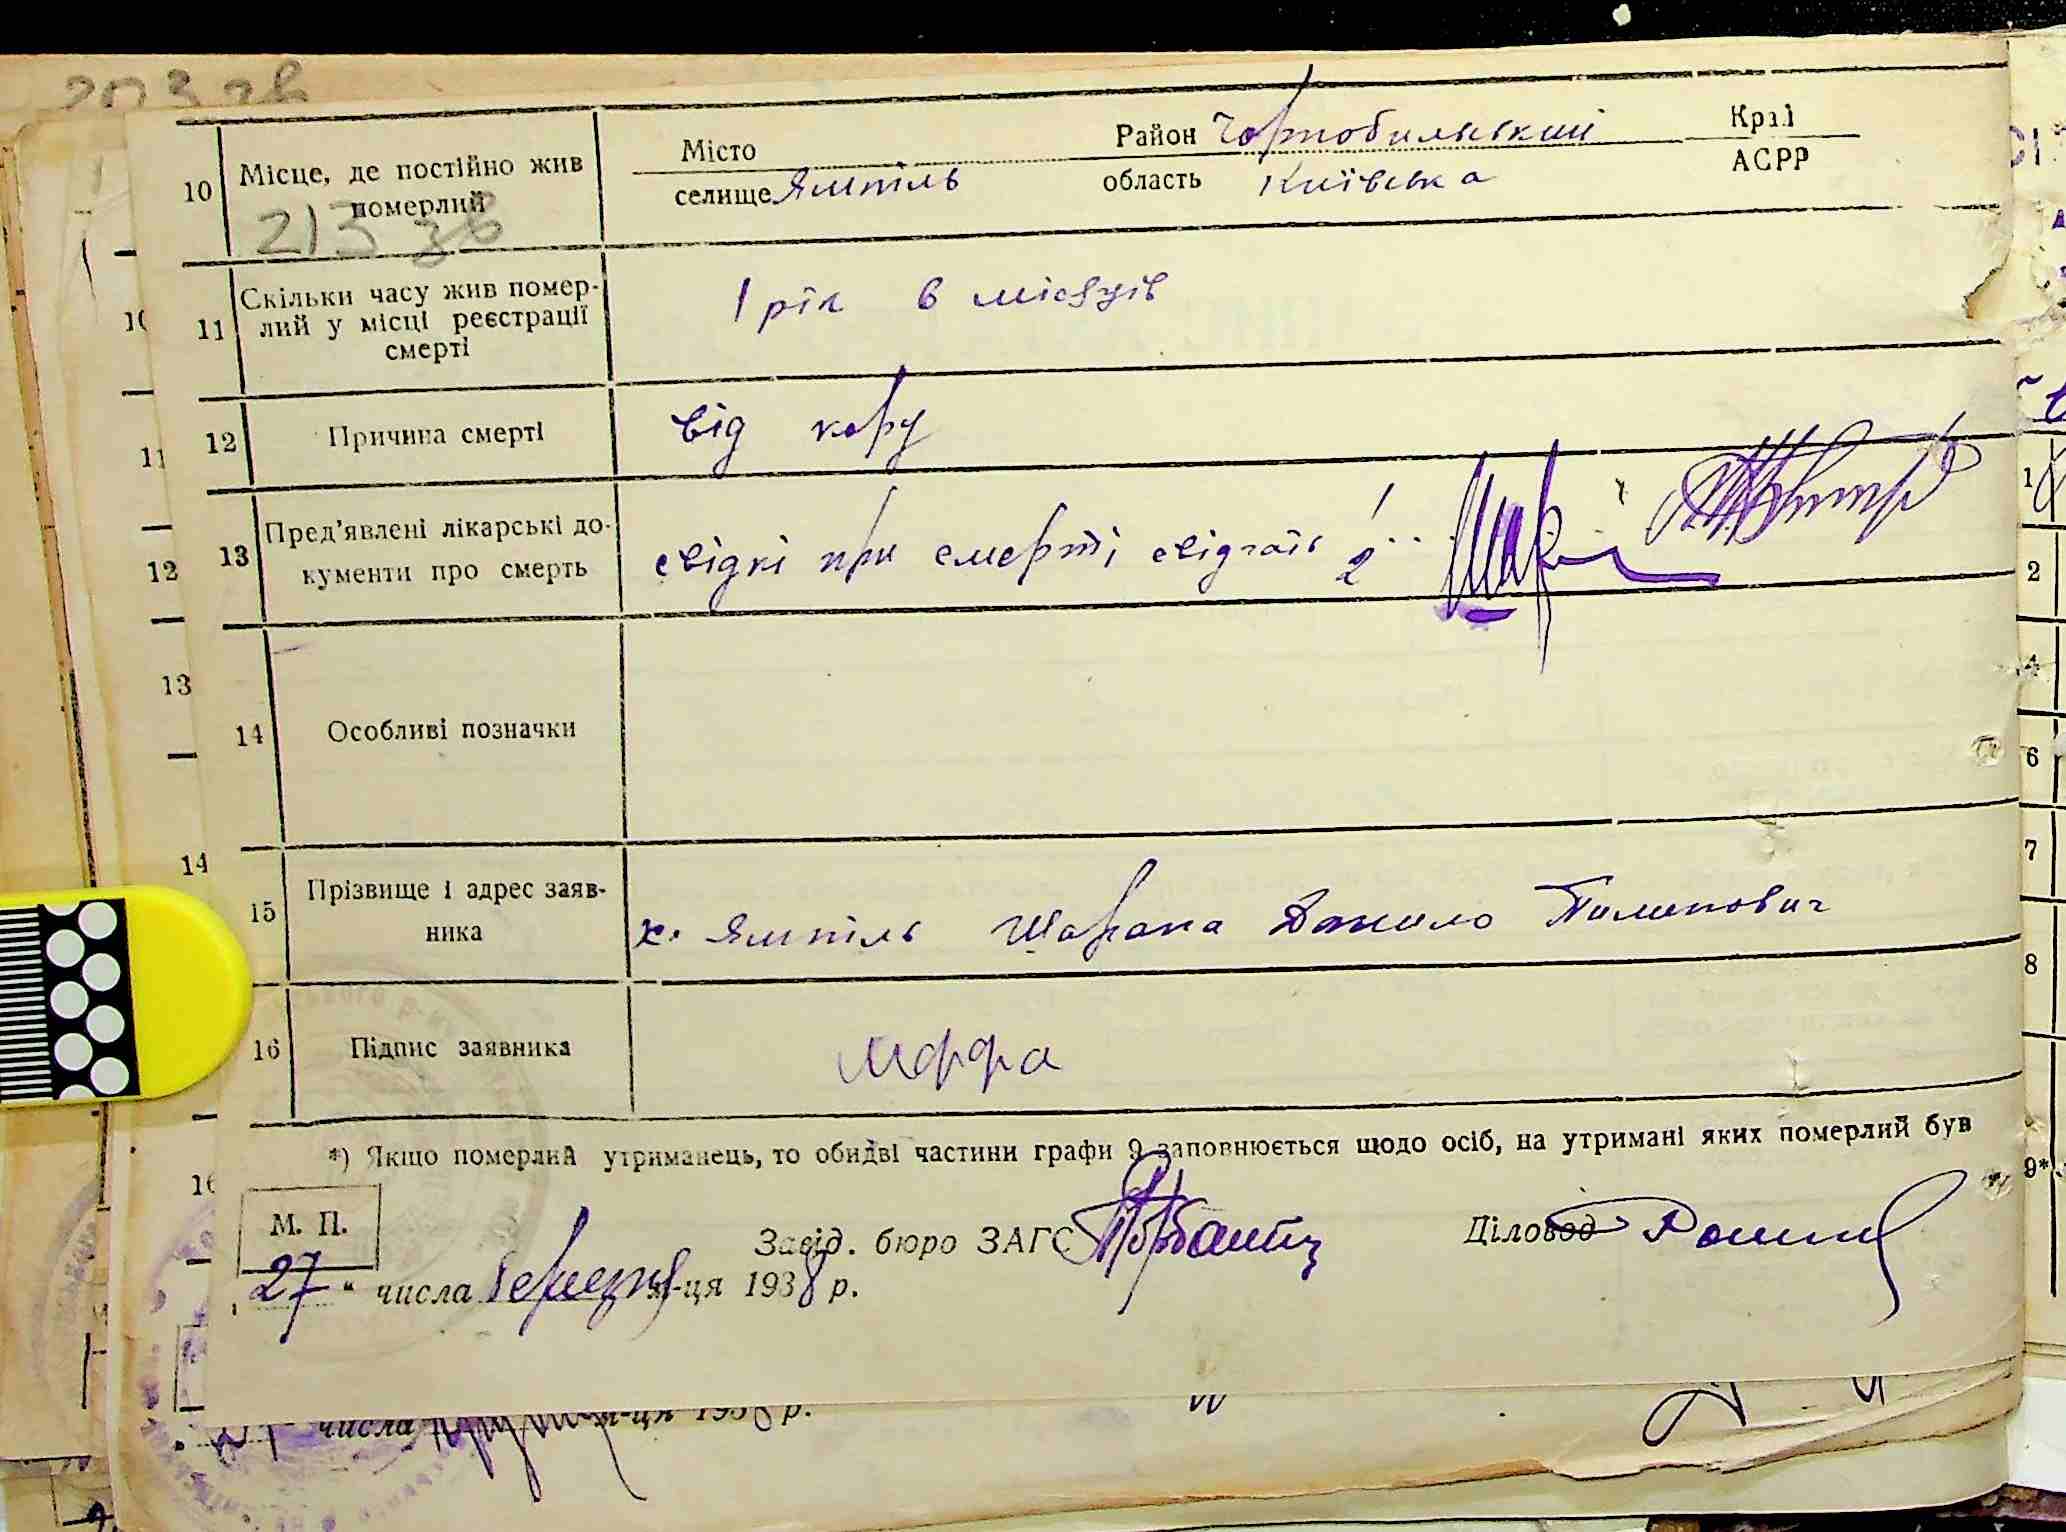 203 зв
10 Місце, де постійно жив померлий
213 зв
Місто Район Чорнобильський Край
селище Ямпіль область Київська АСРР
11 Скільки часу жив помер-
лий у місці реєстрації
смерті
1 рік 6 місяців
12 Причина смерті від кору
13 Пред'явлені лікарські до-
кументи про смерть
свідкі при смерті 1
2
14 Особливі позначки
15 Прізвище і адрес заяв-
ника
х. Ямпіль Данило Пилипович
16 Підпис заявника
*) Якщо померлий утриманець, то обидві частини графи 9 заповнюється щодо осіб, на утримані яких померлий був
М. П.
Завід. бюро ЗАГС Діловод
„27“ числа березня м-ця 1938 р.
числа м-ця 1938 р.
10
11
12
13
14
16
1
2
4
6
7
8
9*